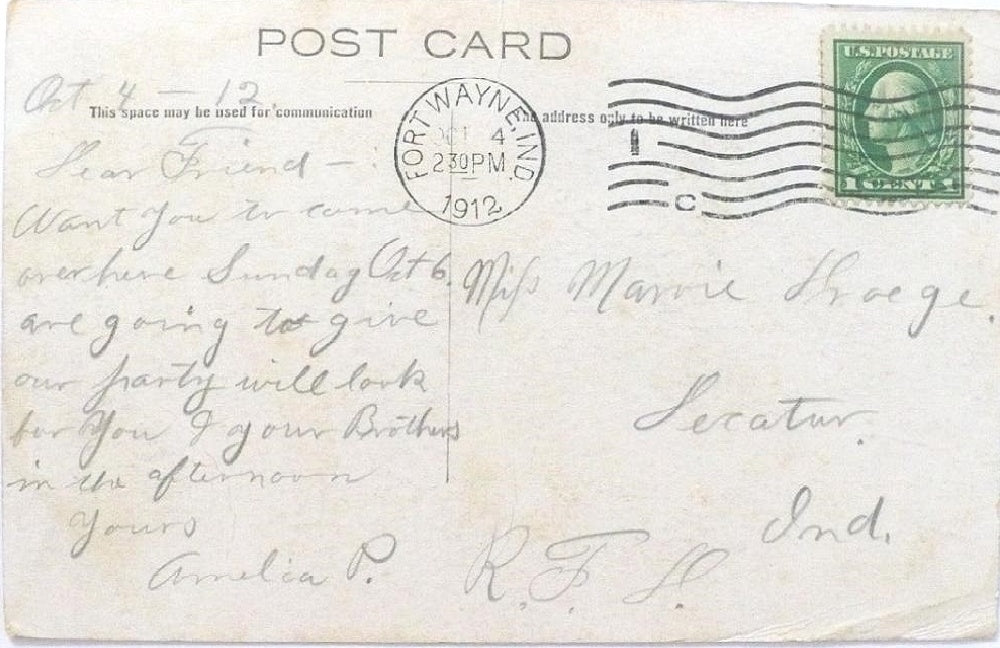 POST CARD
Oct 4 - 12
This space may be used for communication
The address only to be written here
FORT WAYNE, IND.
OCT 4
2 30 PM
1912
1
C
U.S. POSTAGE
1 CENT 1
Dear Friend -
Want You to come
over here Sunday Oct 6.
are going to give
our party will look
for You & your Brothers
in the afternoon
Yours
Amelia P.
Miss Marvie
Decatur.
Ind.
R. F. D.